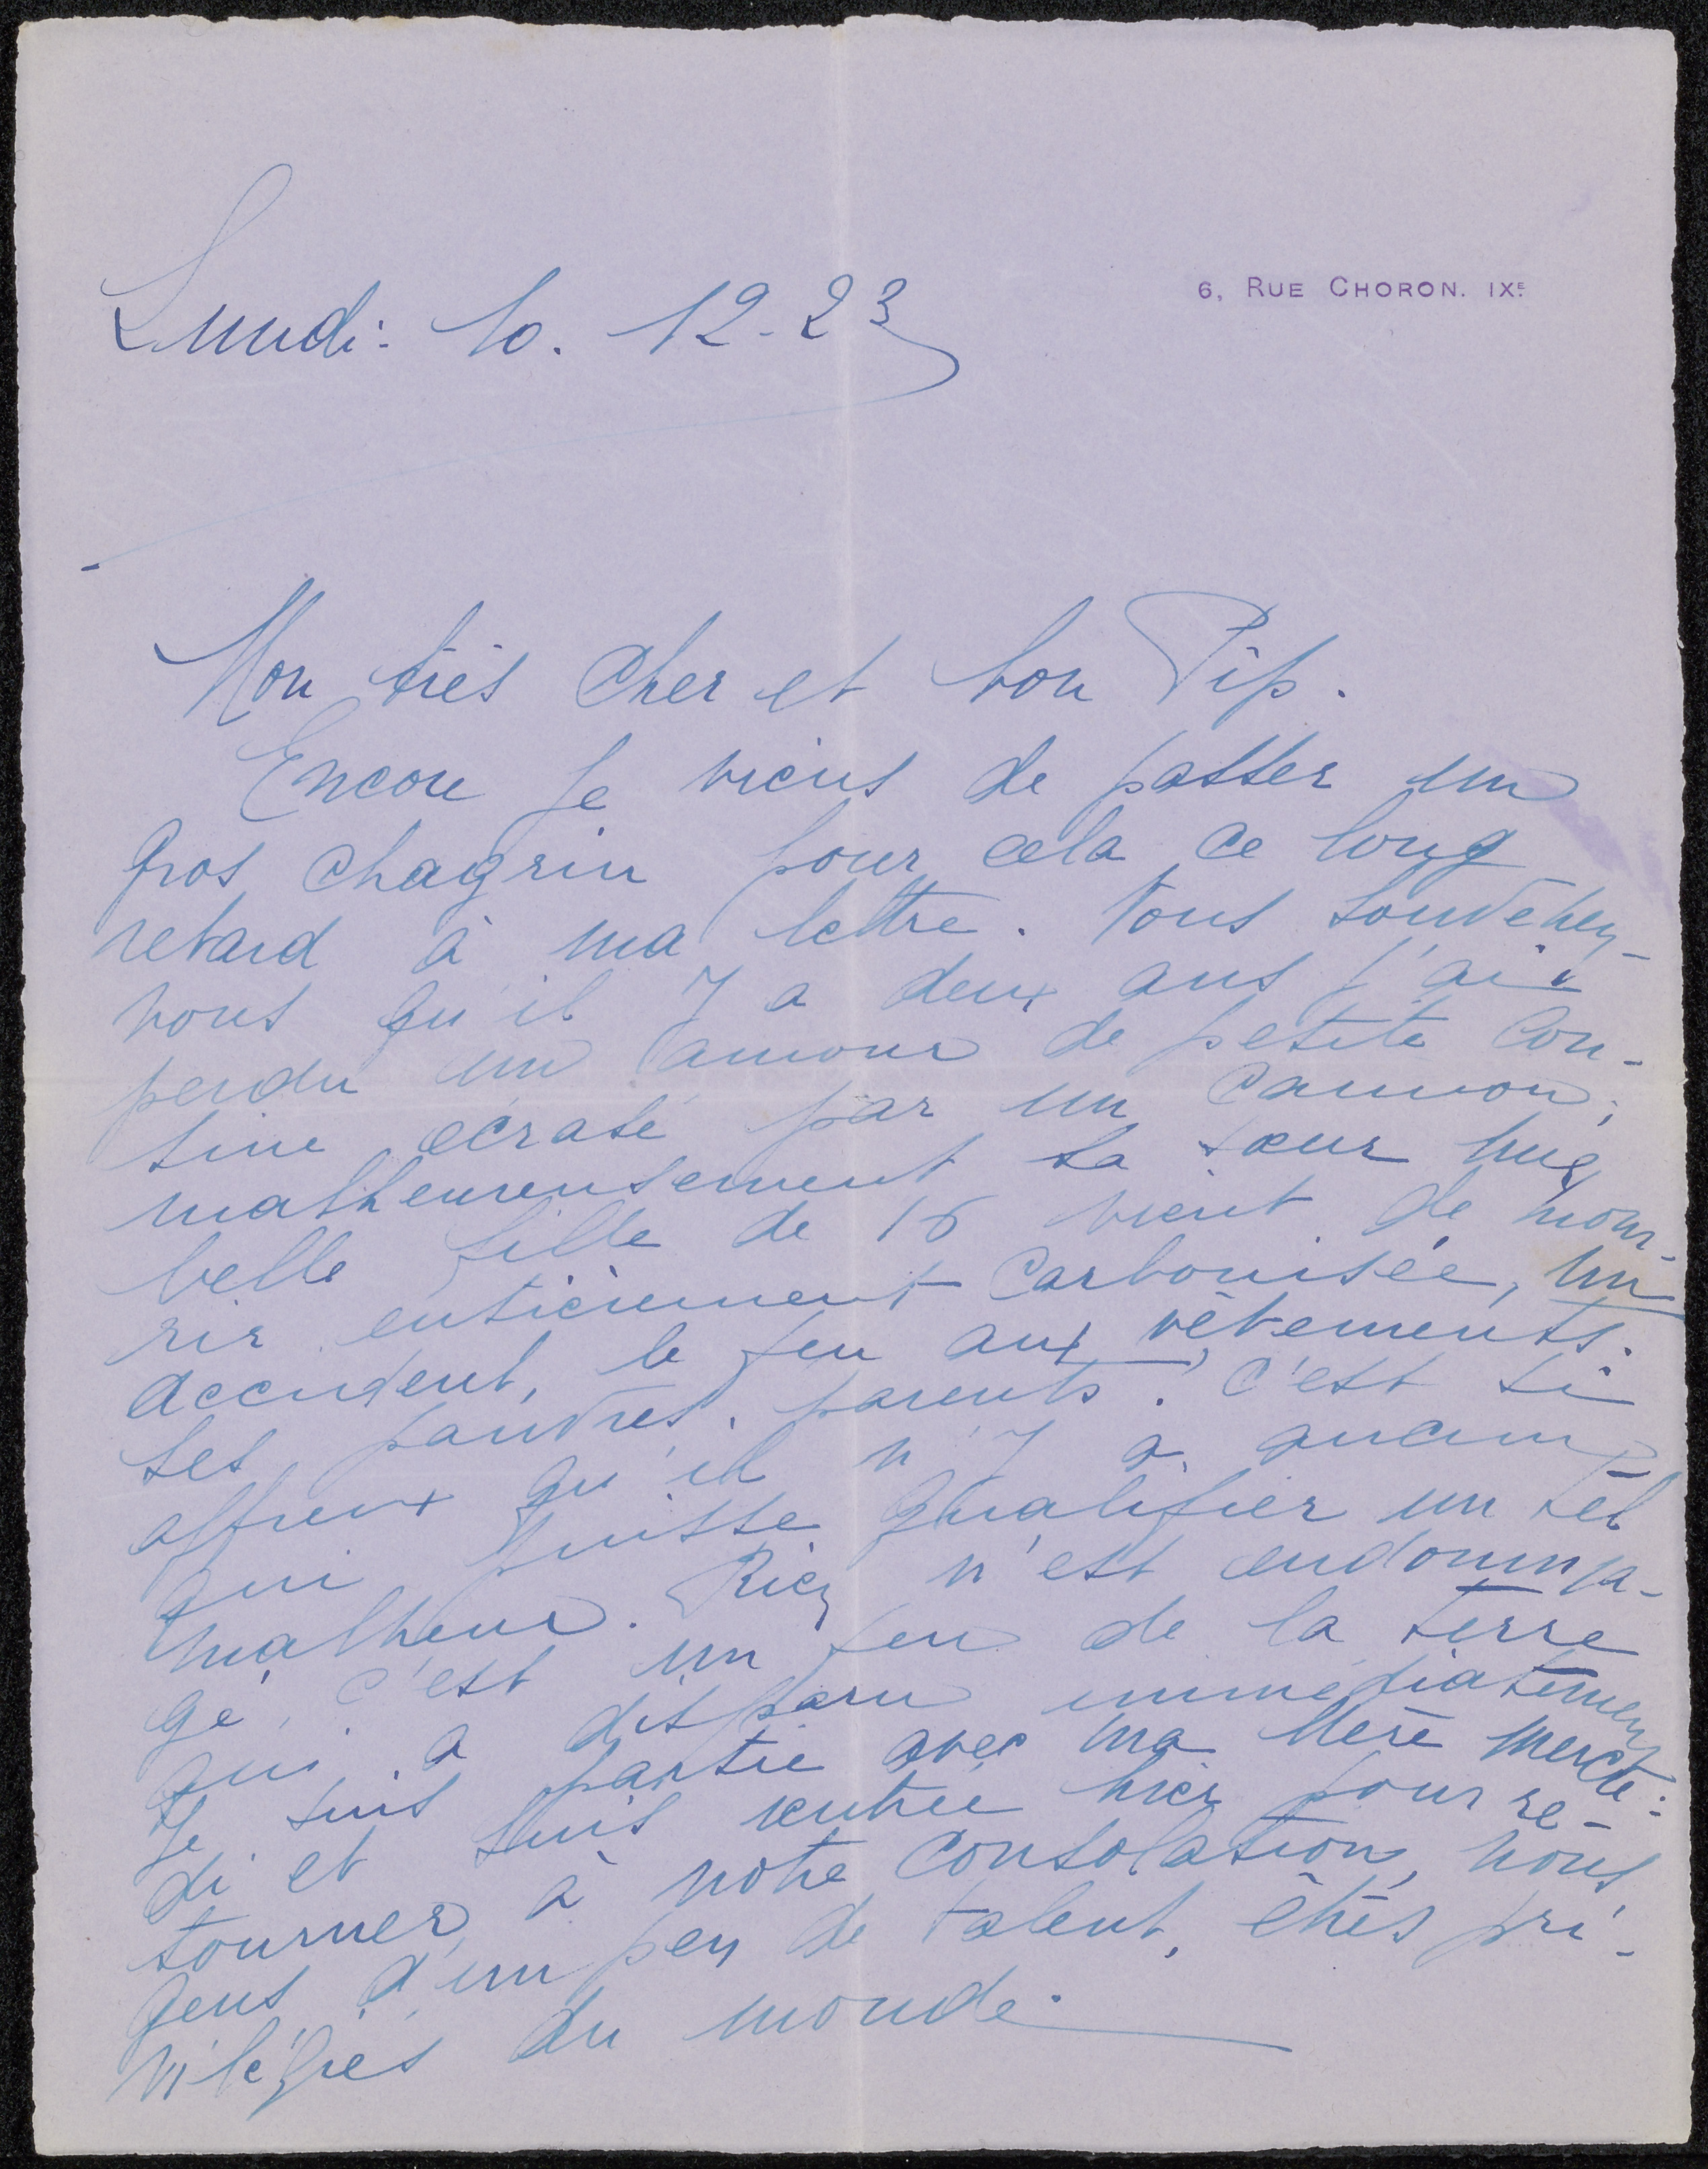 6, RUE CHORON. IXE.
Lundi: 10. 12-23
Mon très Cher et bon Pip.
Encore je viens de passer un
gros chagrin pour cela ce long
retard à ma lettre. Vous souvenez-
vous qu'il y a deux ans j'ai
perdu un amour de petite cou-
sine écrasé par un camion,
malheureusement sa sœur une
belle fille de 16 vient de mou-
rir entièrement carbonisée, un
accident, le feu aux vêtements.
Ses pauvres parents. C'est si
affreux qu'il n'y a aucun
qui puisse qualifier un tel
malheur. Rien n'est endomma-
gé, c'est un feu de la terre
qui a disparu immédiatement
Je suis partie avec ma Mère mercre-
di et suis rentrée hier pour re-
tourner à notre Consolation, nous
gens d'un peu de talent, êtres pri-
vilégiés du monde.